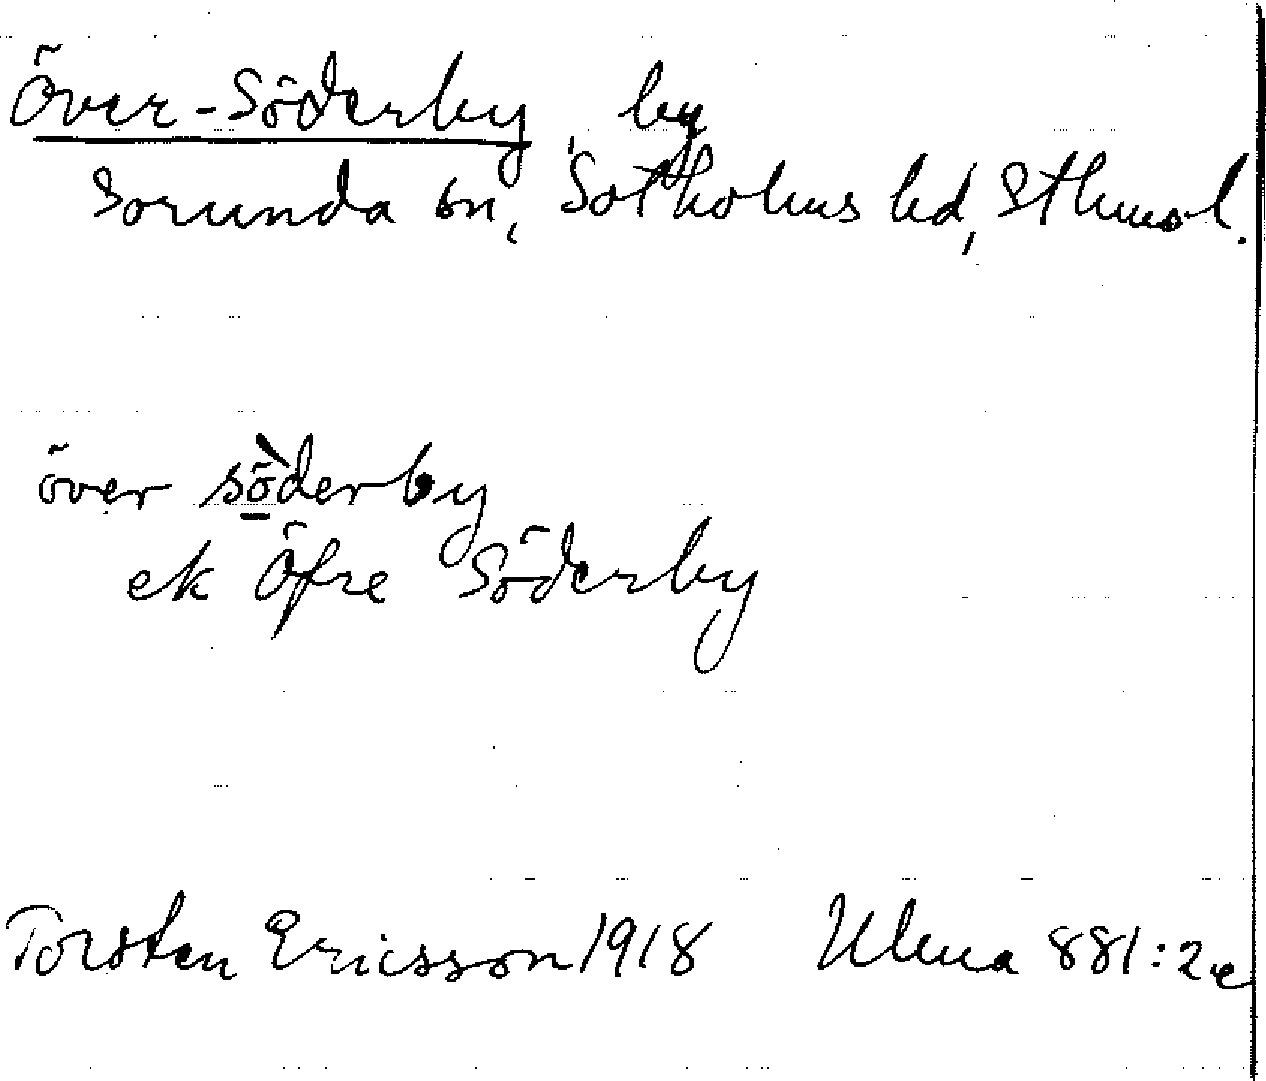 Över-Söderby, by
Sorunda sn, Sotholms hd, Sthmsl.
över sö̱̀derby
ek Öfre Söderby
Torsten Ericsson 1918 Ulma 881:2e